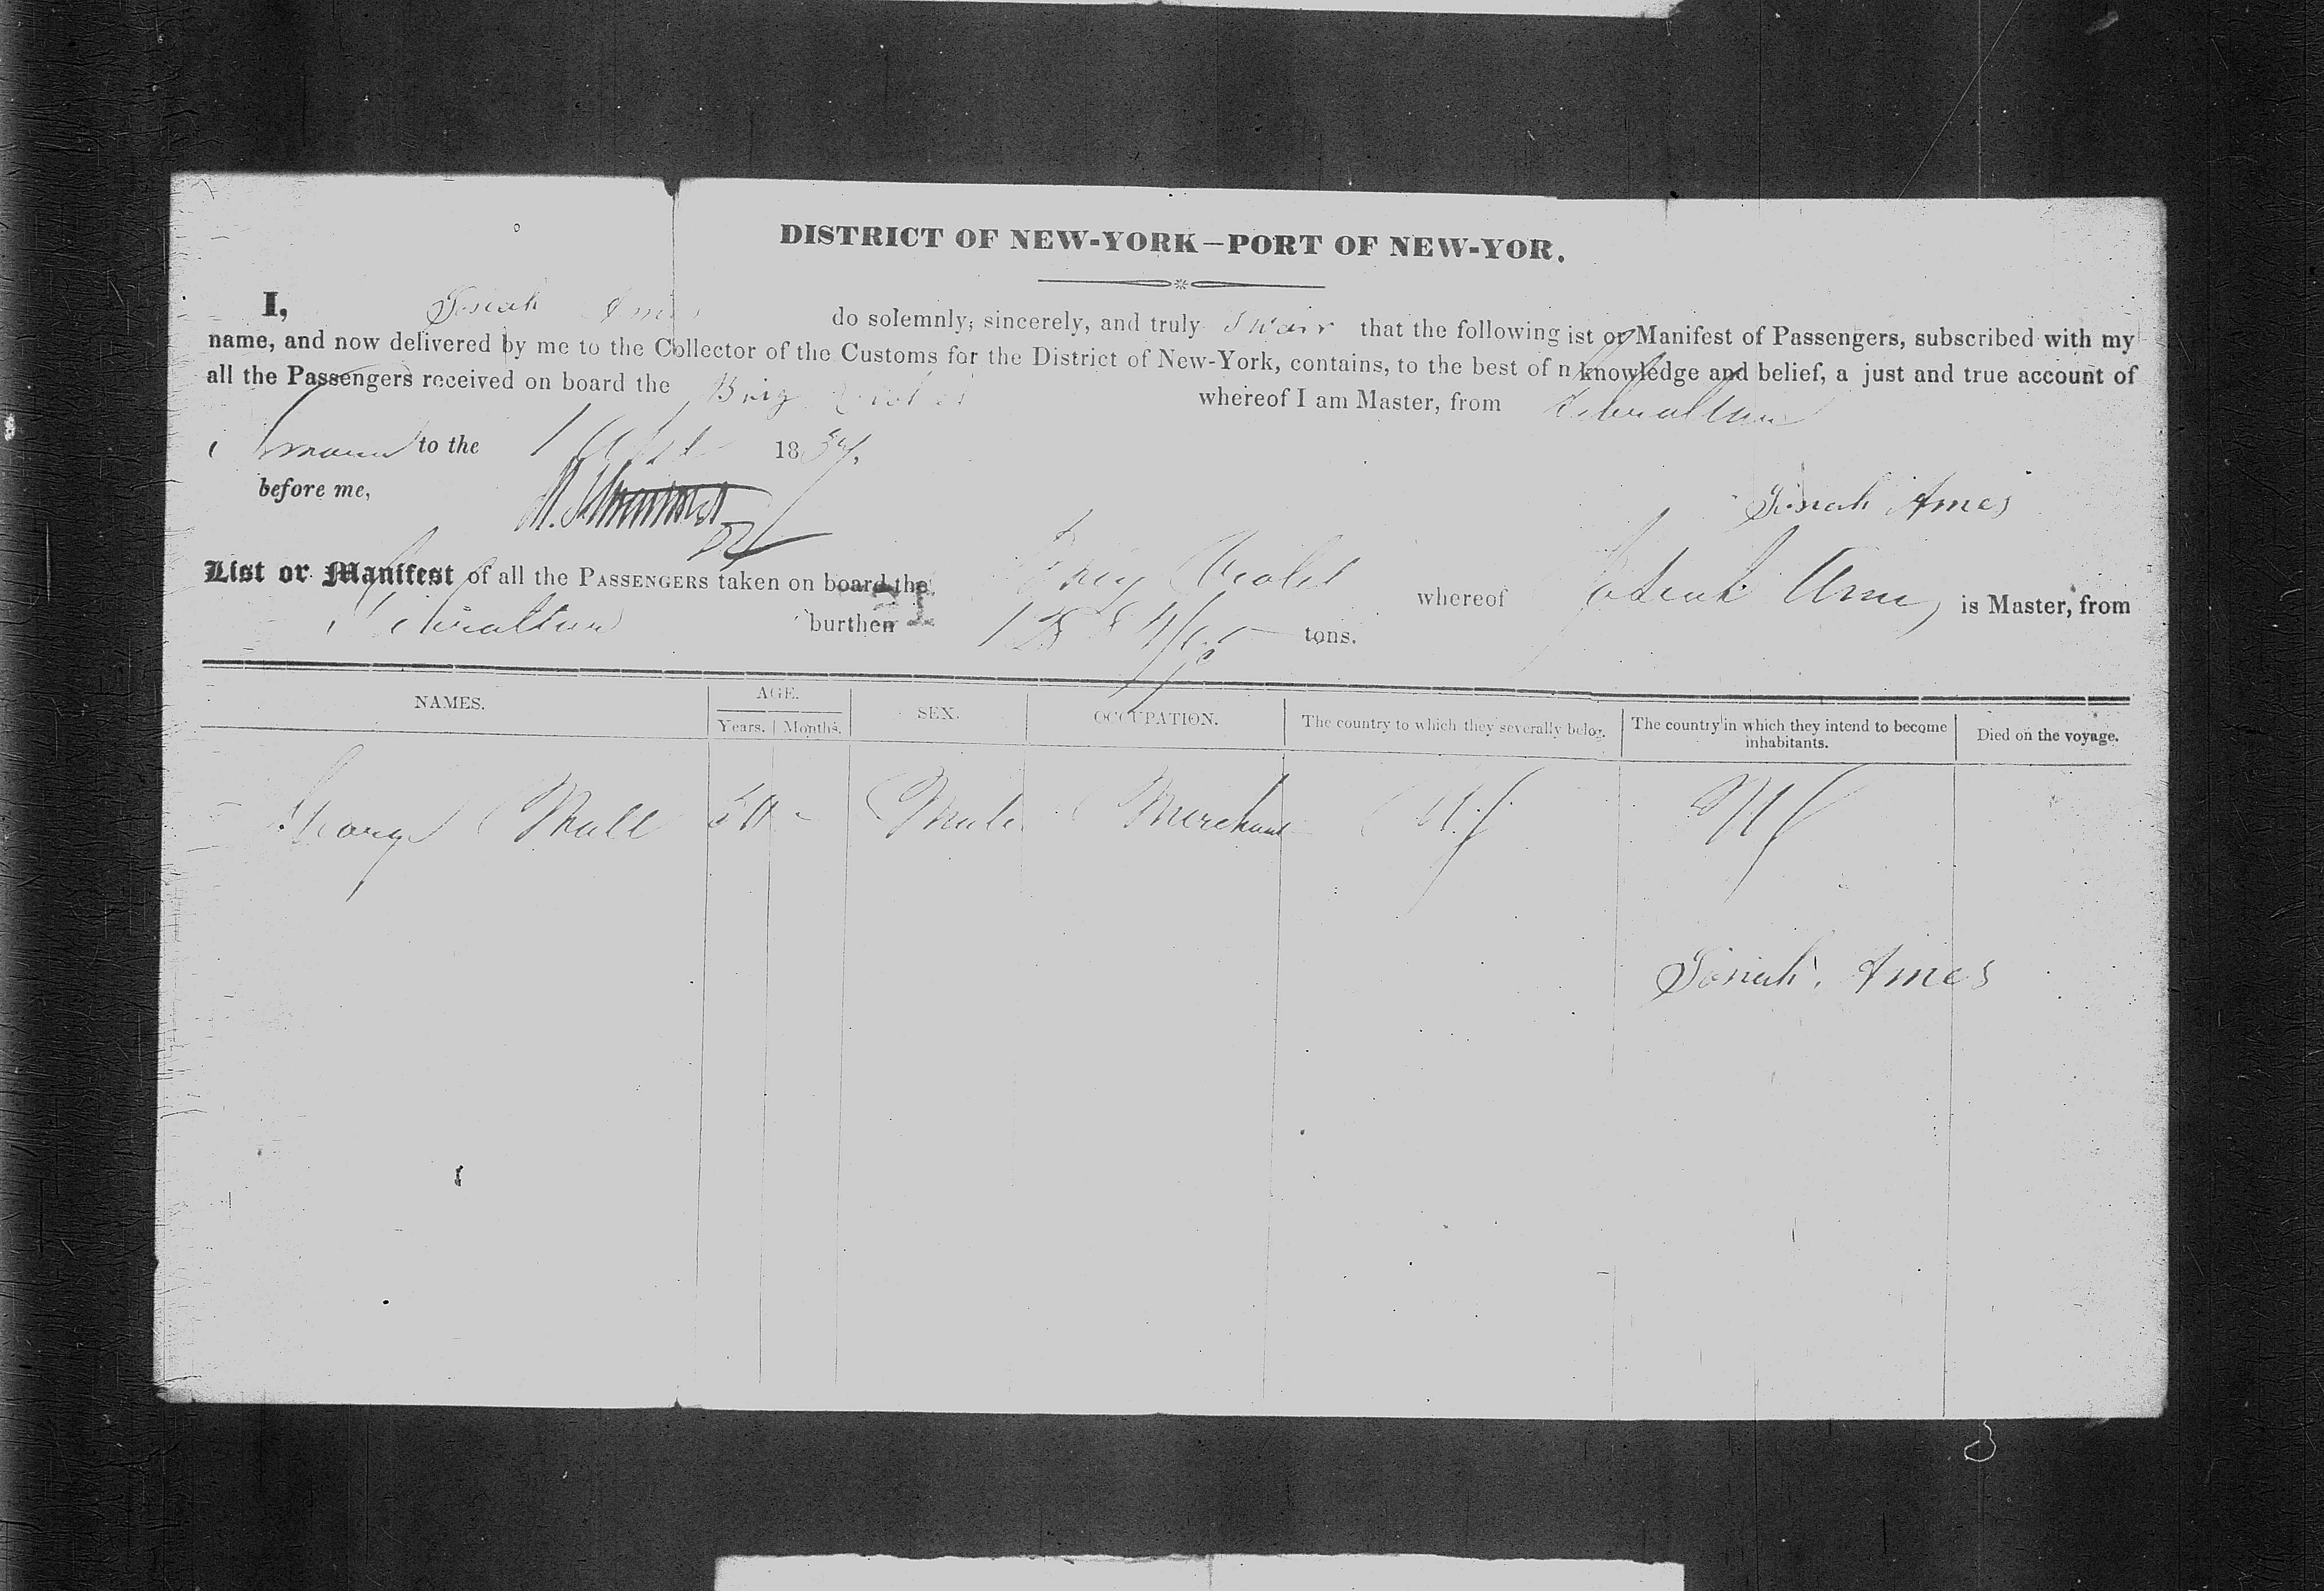 DISTRICT OF NEW-YORK—PORT OF NEW-YOR.
I, Josiah Ames do solemnly, sincerely, and truly Swair that the following ist or Manifest of Passengers, subscribed with my
name, and now delivered by me to the Collector of the Customs for the District of New-York, contains, to the best of n knowledge and belief, a just and true account of
all the Passengers received on board the Brig Violet whereof I am Master, from Gibraltar
to the 1 Sept 18
before me,
Josiah Ames
List or Manifest of all the PASSENGERS taken on board the Brig Violet whereof Josiah Ames is Master, from
Gibraltar burthen tons.
NAMES. AGE. SEX. OCCUPATION. The country to which they severally belog. The country in which they intend to become inhabitants. Died on the voyage.
Years. Months.
George Mull - Male Merchant
Josiah Ames